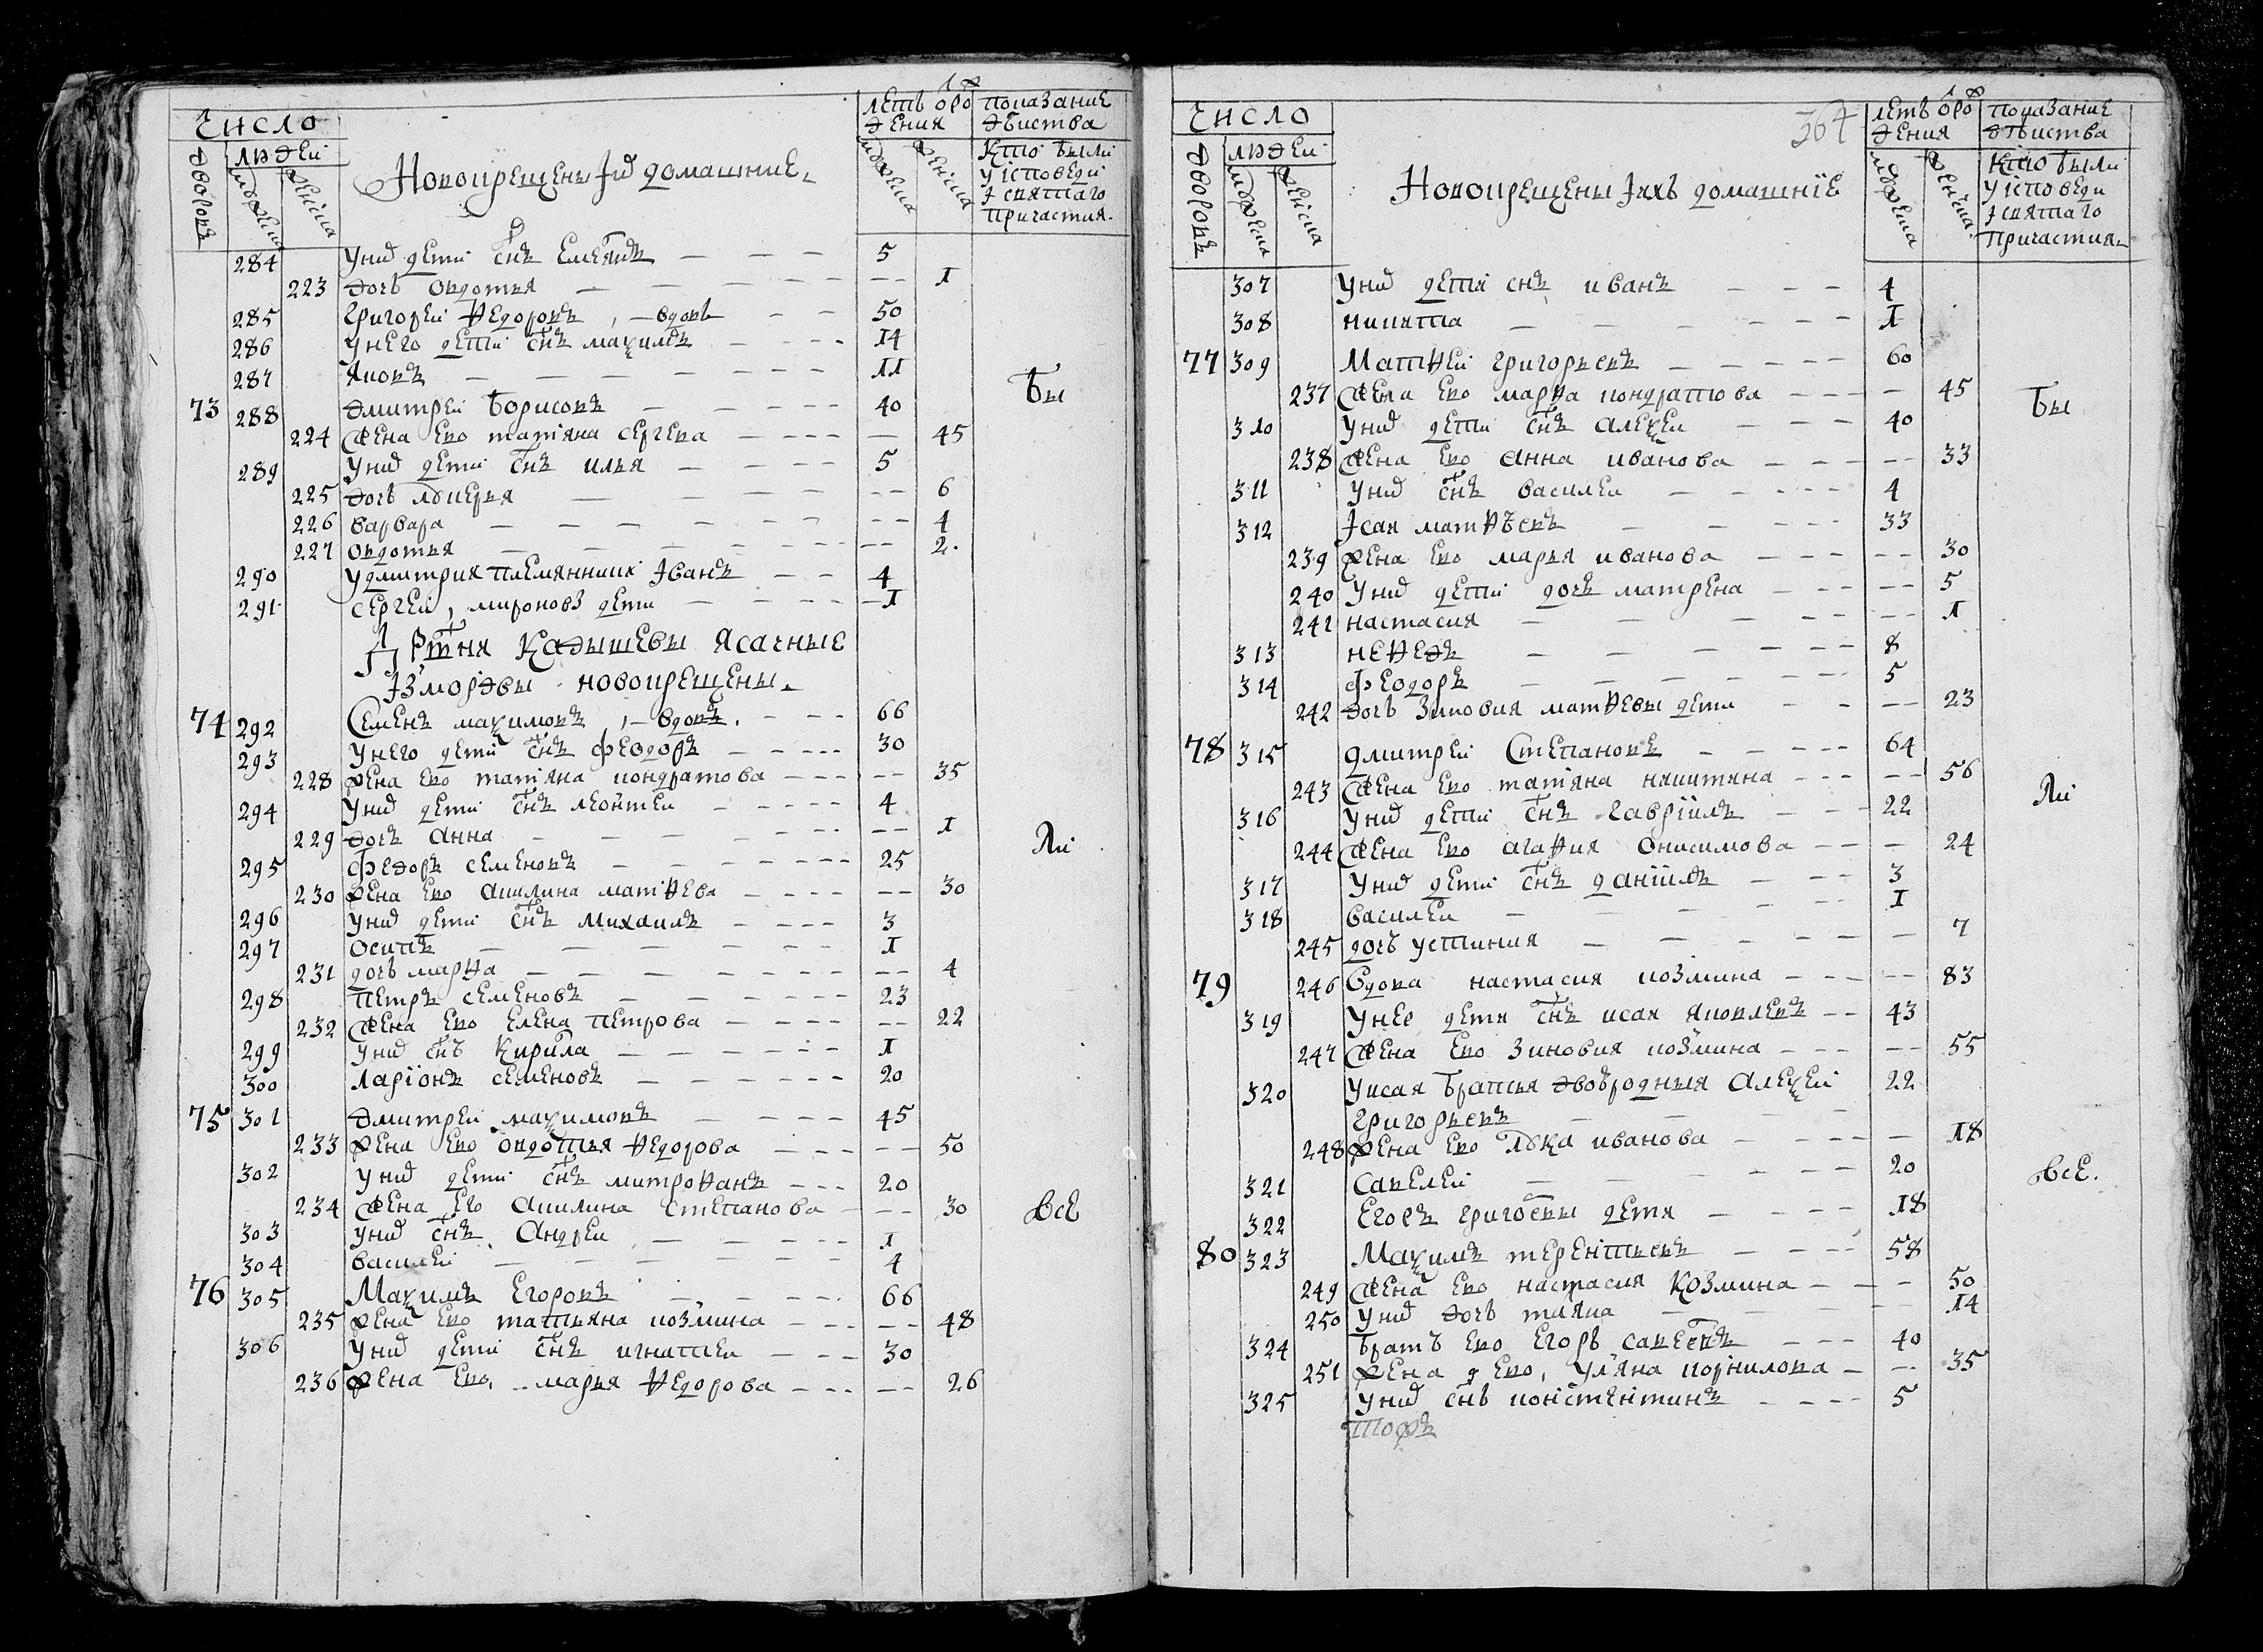 Число
Новокрещены и их домашние
летъ от рождения
показание действа
дворовъ
людей
мужеска
женска
мужеска
женска
Кто были у исповеди и святаго причастия
284 У них дети снъ Емелянъ 5
223 дочь овдотья 1
285 Григорей Ѳедоровъ, вдовъ 50
286 У него дети снъ максимъ 14
287 Яковъ 11
73 288 Дмитрей борисовъ 40
224 Жена ево татияна сергева 45
289 У них дети снъ илья 5
225 дочь лукерья 6
226 варвара 4
227 овдотья 2
290 У дмитрия племянники Iванъ 4
291 сергей, мироновы дети 1
Бы
Дрвня Кадышевы ясачные
Iзмордвы новокрещены
74 292 Семенъ максимовъ, вдовъ 66
293 У него дети снъ феодоръ 30
228 жена ево татияна кондратова 35
294 У них дети снъ леонтей 4
229 дочь анна 1
295 федоръ семеновъ 25
230 жена ево акилина матѲева 30
296 У них дети снъ михаилъ 3
297 осипъ 1
231 дочь марѲа 4
298 петръ семеновъ 23
232 Жена ево елена петрова 22
299 У них снъ Кирила 1
300 ларионъ семеновъ 20
ли
75 301 Дмитрей максимовъ 45
233 жена ево овдотья Ѳедорова 50
302 У них дети снъ митроѲанъ 20
234 Жена его акилина степанова 30
303 У них снъ Андрей 1
304 василей 4
76 305 Максимъ Егоровъ 66
235 жена ево татьяна козмина 48
306 У них дети снъ игнатей 30
236 жена ево марья Ѳедорова 26
все
364
Число
Новокрещены и ихъ домашнïе
летъ от рождения
показание действа
дворовъ
людей
мужеска
женска
мужеска
женска
Кто были у исповеди и святаго причастия
307 У них дети снъ иванъ 4
308 никита 1
77 309 МатѲей григорьевъ 60
237 Жена ево марѲа кондратова 45
310 У них дети снъ алексей 40
238 Жена ево анна иванова 33
311 У них снъ василей 4
312 Iсая матѲѣевъ 33
239 жена ево марья иванова 30
240 У них дети дочь матрена 5
241 настасия 1
313 неѲедъ 8
314 феодоръ 5
242 дочь зиновия матѲевы дети 23
Бы
78 315 Дмитрей Степановъ 64
243 Жена ево татияна никитина 56
316 У них дети снъ гаврïилъ 22
244 Жена ево агаѲия онисимова 24
317 У них дети снъ данïилъ 3
318 василей 1
245 дочь устиния 7
ли
79 246 Вдова настасия козмина 83
319 У нее дети снъ исая яковлевъ 43
247 Жена ево зиновия козмина 55
320 У исая братья двоюродныя алексей 22
григорьевъ
248 жена ево лукя иванова 18
321 савелей 20
322 Егоръ григоевы дети 18
80 323 Максимъ терентьевъ 58
249 Жена ево настасия козмина 50
250 У них дочь таяна 14
324 братъ ево егоръ савеевъ 40
251 жена ево, уляна корнилова 35
325 У них снъ констентинъ 5
все.
тожъ